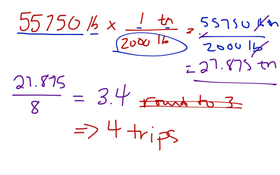 55750 lb × 1 tn / 2000 lb = 55750 lb tn / 2000 lb
= 27.875 tn
27.875 / 8 = 3.4 round to 3
⇒ 4 trips